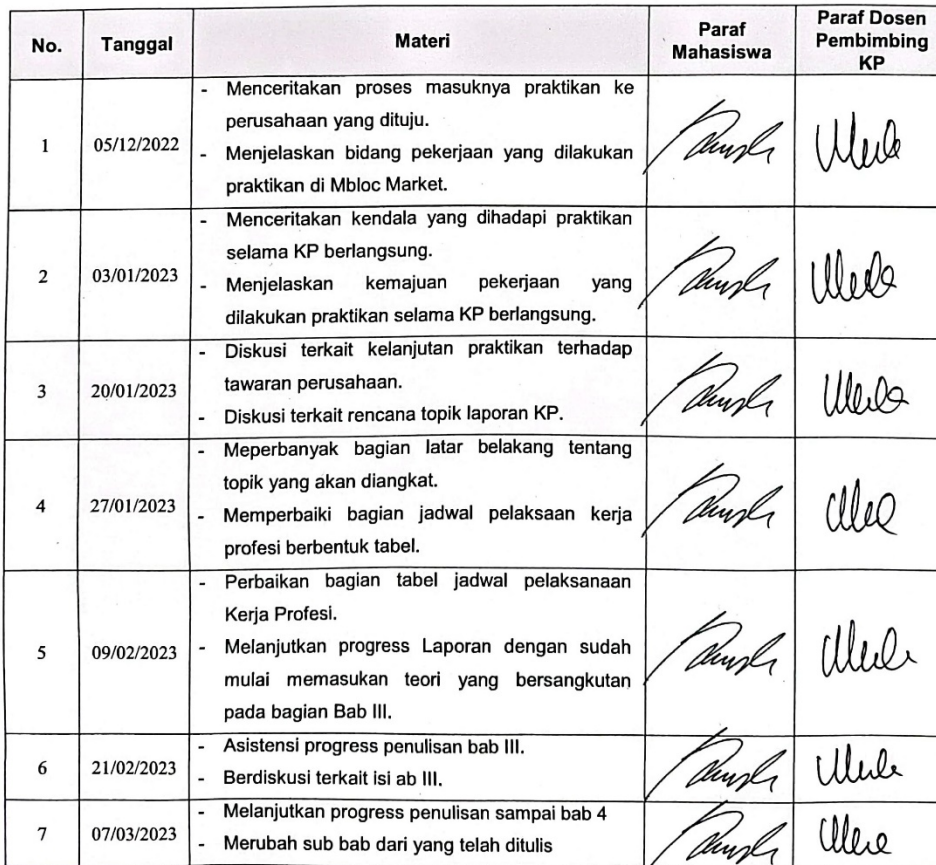 No. Tanggal Materi Paraf Mahasiswa Paraf Dosen Pembimbing KP
1 05/12/2022
- Menceritakan proses masuknya praktikan ke
perusahaan yang dituju.
- Menjelaskan bidang pekerjaan yang dilakukan
praktikan di Mbloc Market.
2 03/01/2023
- Menceritakan kendala yang dihadapi praktikan
selama KP berlangsung.
- Menjelaskan kemajuan pekerjaan yang
dilakukan praktikan selama KP berlangsung.
3 20/01/2023
- Diskusi terkait kelanjutan praktikan terhadap
tawaran perusahaan.
- Diskusi terkait rencana topik laporan KP.
4 27/01/2023
- Meperbanyak bagian latar belakang tentang
topik yang akan diangkat.
- Memperbaiki bagian jadwal pelaksaan kerja
profesi berbentuk tabel.
5 09/02/2023
- Perbaikan bagian tabel jadwal pelaksanaan
Kerja Profesi.
- Melanjutkan progress Laporan dengan sudah
mulai memasukan teori yang bersangkutan
pada bagian Bab III.
6 21/02/2023
- Asistensi progress penulisan bab III.
- Berdiskusi terkait isi ab III.
7 07/03/2023
- Melanjutkan progress penulisan sampai bab 4
- Merubah sub bab dari yang telah ditulis